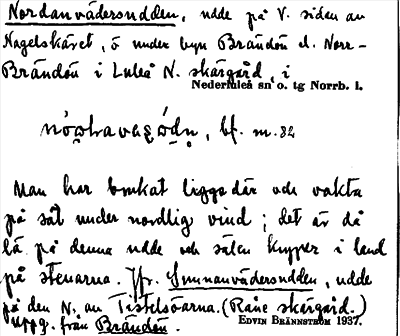 Nordanvädersudden, udde på V. sidan av
Nagelskäret, ö under byn Brändön el. Norr-
Brändön i Luleå N. skärgård, i
Nederluleå sn o. tg Norrb. l.
bf. m. 82
Man har brukat ligga där och vakta
på säl under nordlig vind; det är då
lä på denna udde och sälen kryper i land
på stenarna. Jfr. Sunnanvädersudden, udde
på den N. av Tistelsöarna. (Råne skärgård.)
uppg. från Brändön. EDVIN BRÄNNSTRÖM 1937.